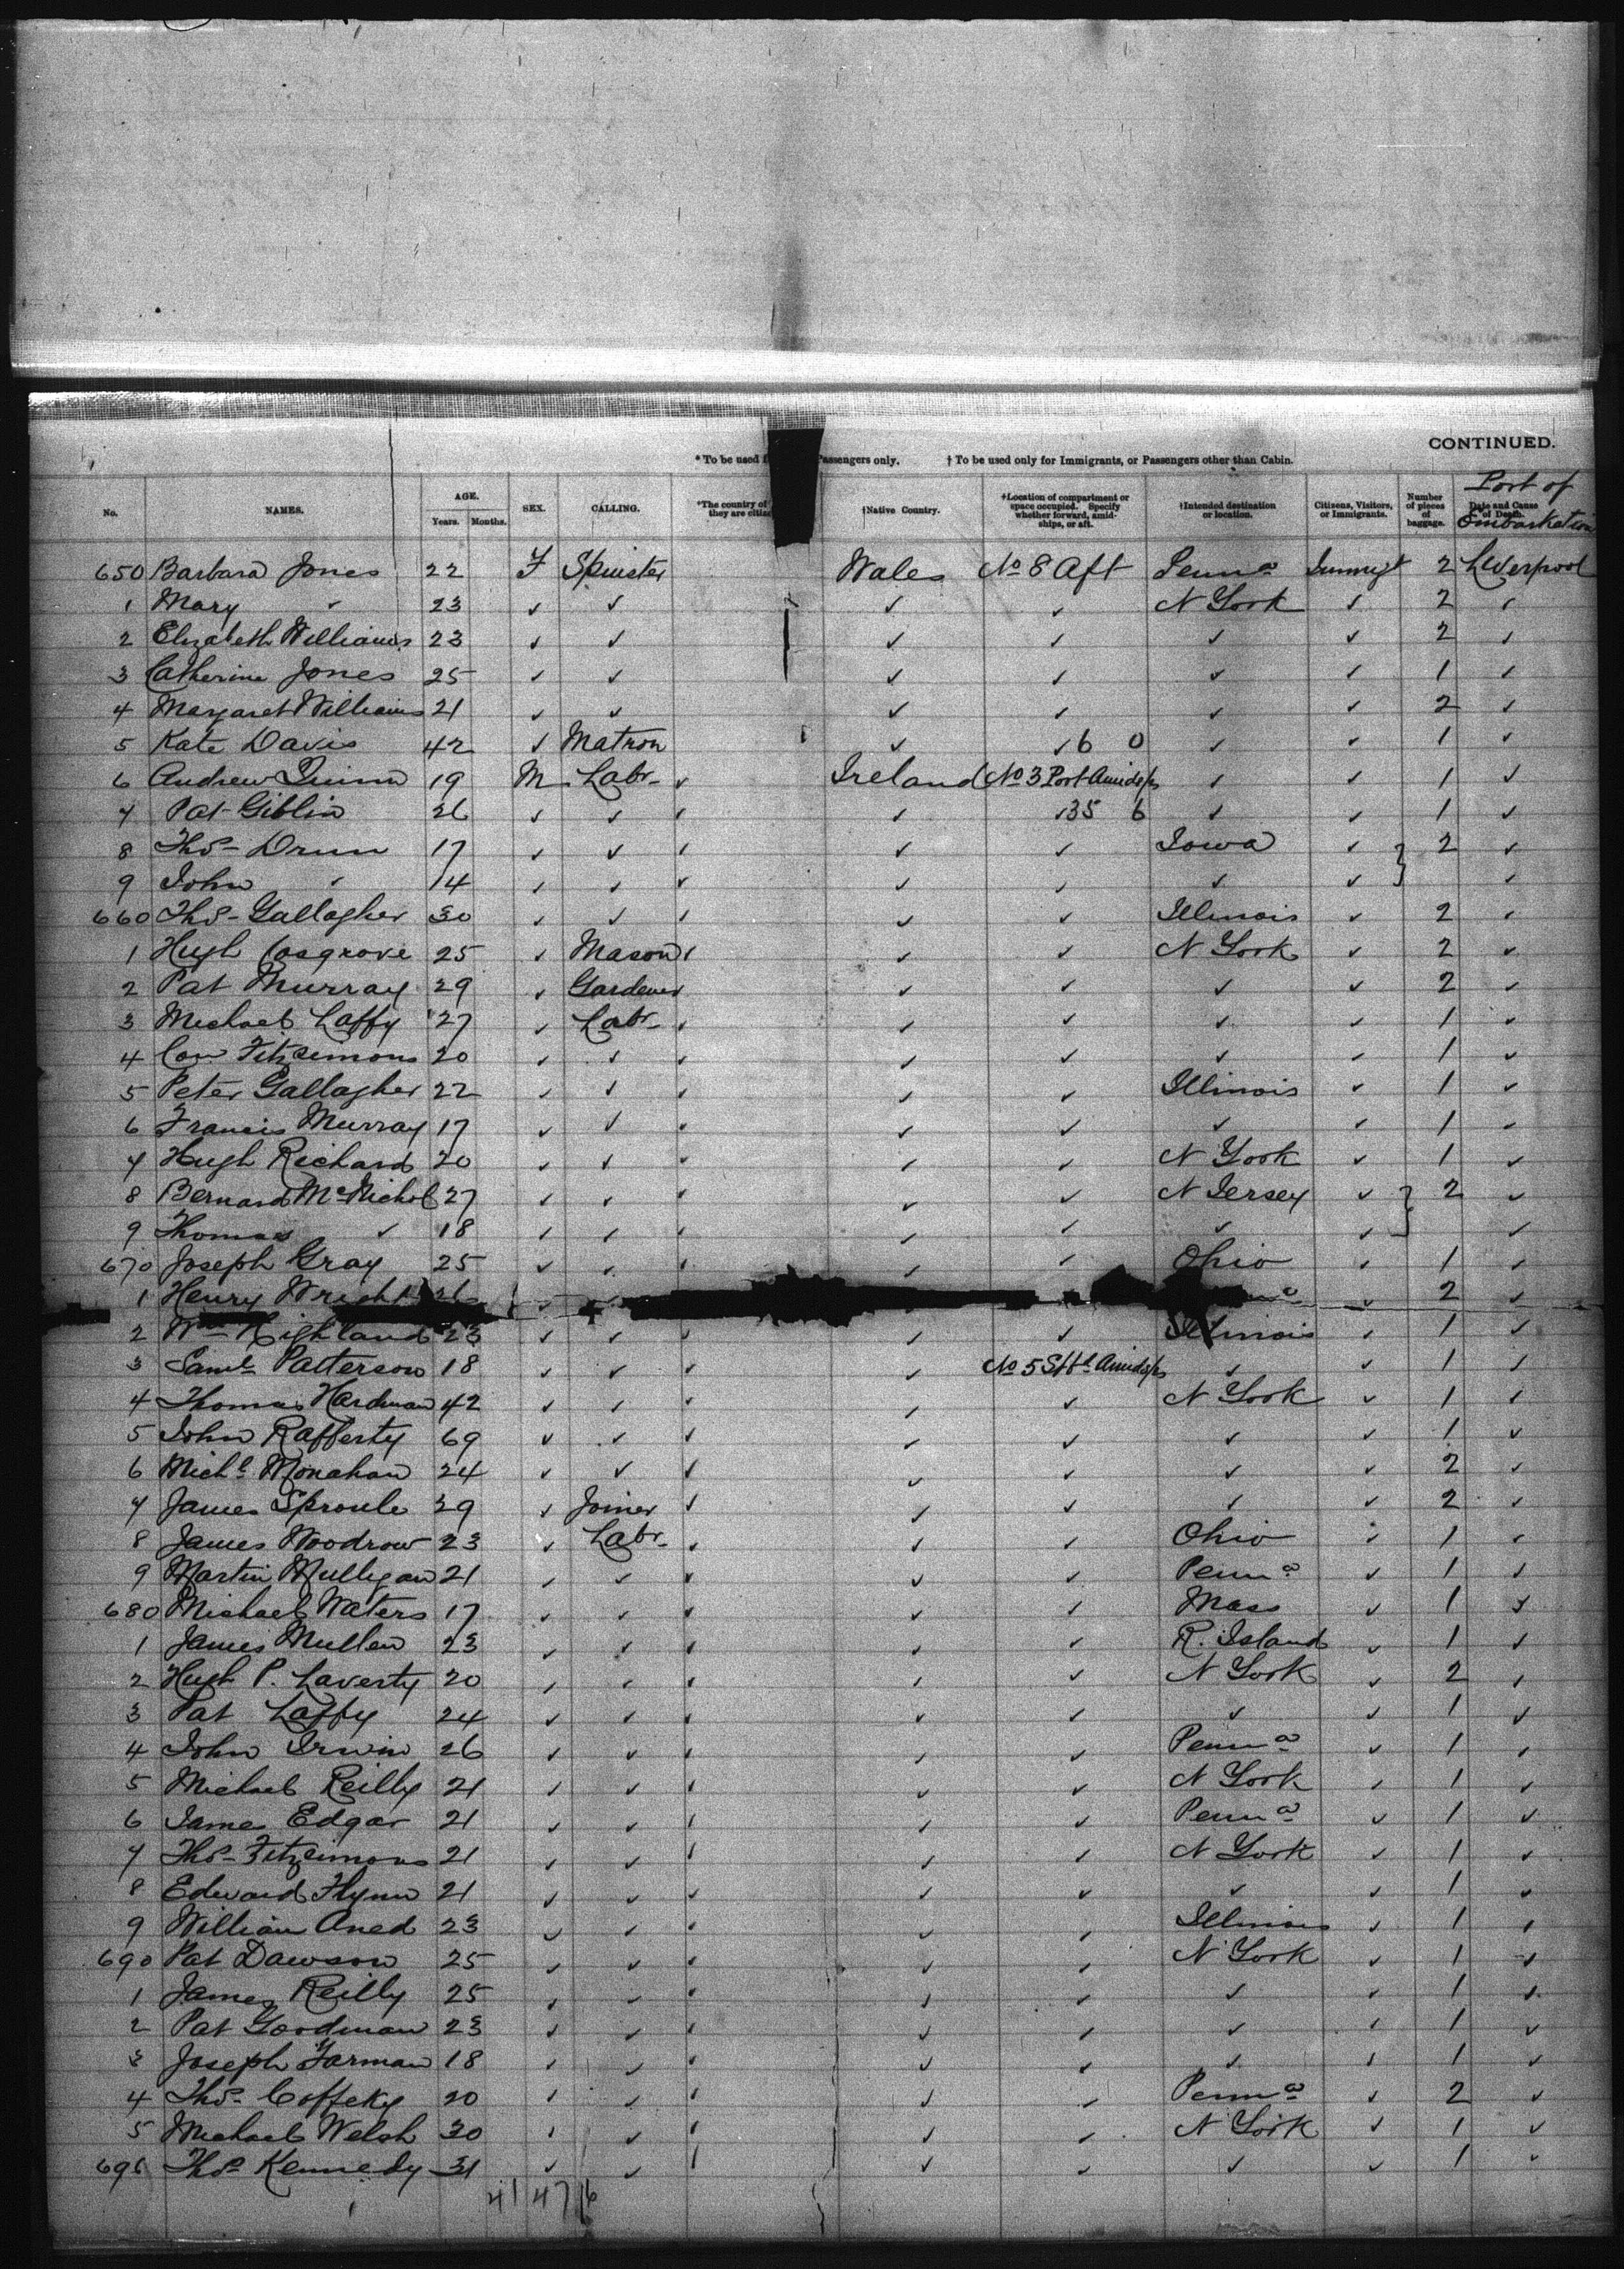 CONTINUED.
* To be used f Passengers only. † To be used only for Immigrants, or Passengers other than Cabin.
No. NAMES. AGE. Years. Months. SEX. CALLING. *The country of they are citiz †Native Country. †Location of compartment or space occupied. Specify whether forward, amidships, or aft. †Intended destination or location. Citizens, Visitors, or Immigrants. Number of pieces of baggage. Date and Cause of Death. Port of Embarkation
650 Barbara Jones 22 F Spinster Wales No 8 Aft Penna Immigt 2 Liverpool
1 Mary " 23 ✓ ✓ ✓ ✓ N York ✓ 2 ✓
2 Elizabeth Williams 23 ✓ ✓ ✓ ✓ ✓ ✓ 2 ✓
3 Catherine Jones 25 ✓ ✓ ✓ ✓ ✓ ✓ 1 ✓
4 Margaret Williams 21 ✓ ✓ ✓ ✓ ✓ ✓ 2 ✓
5 Kate Davis 42 ✓ Matron ✓ ✓ 6 0 ✓ ✓ 1 ✓
6 Andrew Quinn 19 M Labr ✓ Ireland No 3 Port Amidsps ✓ ✓ 1 ✓
7 Pat Giblin 26 ✓ ✓ ✓ ✓ 35 6 ✓ ✓ 1 ✓
8 Thos Drum 17 ✓ ✓ ✓ ✓ ✓ Iowa ✓ } 2 ✓
9 John " 14 ✓ ✓ ✓ ✓ ✓ ✓ ✓ ✓
660 Thos Gallagher 30 ✓ ✓ ✓ ✓ ✓ Illinois ✓ 2 ✓
1 Hugh Cosgrove 25 ✓ Mason ✓ ✓ ✓ N York ✓ 2 ✓
2 Pat Murray 29 ✓ Gardener ✓ ✓ ✓ ✓ 2 ✓
3 Michael Laffy 27 ✓ Labr ✓ ✓ ✓ ✓ ✓ 1 ✓
4 Con Fitzsimons 20 ✓ ✓ ✓ ✓ ✓ ✓ ✓ 1 ✓
5 Peter Gallagher 22 ✓ ✓ ✓ ✓ ✓ Illinois ✓ 1 ✓
6 Francis Murray 17 ✓ ✓ ✓ ✓ ✓ ✓ ✓ 1 ✓
7 Hugh Richard 20 ✓ ✓ ✓ ✓ ✓ N York ✓ 1 ✓
8 Bernard McNichol 27 ✓ ✓ ✓ ✓ ✓ N Jersey ✓ } 2 ✓
9 Thomas ✓ 18 ✓ ✓ ✓ ✓ ✓ ✓ ✓ ✓
670 Joseph Gray 25 ✓ ✓ ✓ ✓ ✓ Ohio ✓ 1 ✓
1 Henry Wright 26 ✓ ✓ ✓ 2 ✓
2 Wm Highland 23 ✓ ✓ ✓ ✓ ✓ Illinois ✓ 1 ✓
3 Saml Patterson 18 ✓ ✓ ✓ ✓ No 5 Stbd Amidsps ✓ ✓ 1 ✓
4 Thomas Hardman 42 ✓ ✓ ✓ ✓ ✓ N York ✓ 1 ✓
5 John Rafferty 69 ✓ ✓ ✓ ✓ ✓ ✓ ✓ 1 ✓
6 Michl Monahan 24 ✓ ✓ ✓ ✓ ✓ ✓ ✓ 2 ✓
7 James Sproule 29 ✓ Joiner ✓ ✓ ✓ ✓ ✓ 2 ✓
8 James Woodrow 23 ✓ Labr ✓ ✓ ✓ Ohio ✓ 1 ✓
9 Martin Mulligan 21 ✓ ✓ ✓ ✓ ✓ Penna ✓ 1 ✓
680 Michael Waters 17 ✓ ✓ ✓ ✓ ✓ Mass ✓ 1 ✓
1 James Mullen 23 ✓ ✓ ✓ ✓ ✓ R. Island ✓ 1 ✓
2 Hugh P. Laverty 20 ✓ ✓ ✓ ✓ ✓ N York ✓ 2 ✓
3 Pat Laffy 24 ✓ ✓ ✓ ✓ ✓ ✓ ✓ 1 ✓
4 John Irwin 26 ✓ ✓ ✓ ✓ ✓ Penna ✓ 1 ✓
5 Michael Reilly 21 ✓ ✓ ✓ ✓ ✓ N York ✓ 1 ✓
6 James Edgar 21 ✓ ✓ ✓ ✓ ✓ Penna ✓ 1 ✓
7 Thos Fitzsimons 21 ✓ ✓ ✓ ✓ ✓ N York ✓ 1 ✓
8 Edward Flynn 21 ✓ ✓ ✓ ✓ ✓ ✓ ✓ 1 ✓
9 William Aned 23 ✓ ✓ ✓ ✓ ✓ Illinois ✓ 1 ✓
690 Pat Dawson 25 ✓ ✓ ✓ ✓ ✓ N York ✓ 1 ✓
1 James Reilly 25 ✓ ✓ ✓ ✓ ✓ ✓ ✓ 1 ✓
2 Pat Goodman 23 ✓ ✓ ✓ ✓ ✓ ✓ ✓ 1 ✓
3 Joseph Farman 18 ✓ ✓ ✓ ✓ ✓ ✓ ✓ 1 ✓
4 Thos Coffeky 20 ✓ ✓ ✓ ✓ ✓ Penna ✓ 2 ✓
5 Michael Welsh 30 ✓ ✓ ✓ ✓ ✓ N York ✓ 1 ✓
696 Thos Kennedy 31 ✓ ✓ ✓ ✓ ✓ ✓ ✓ 1 ✓
41 47 6